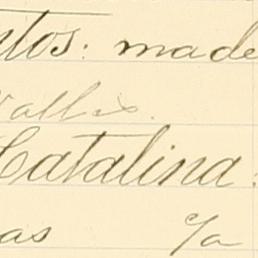 ntos: made
Vallix.
Catalina:
as c/a